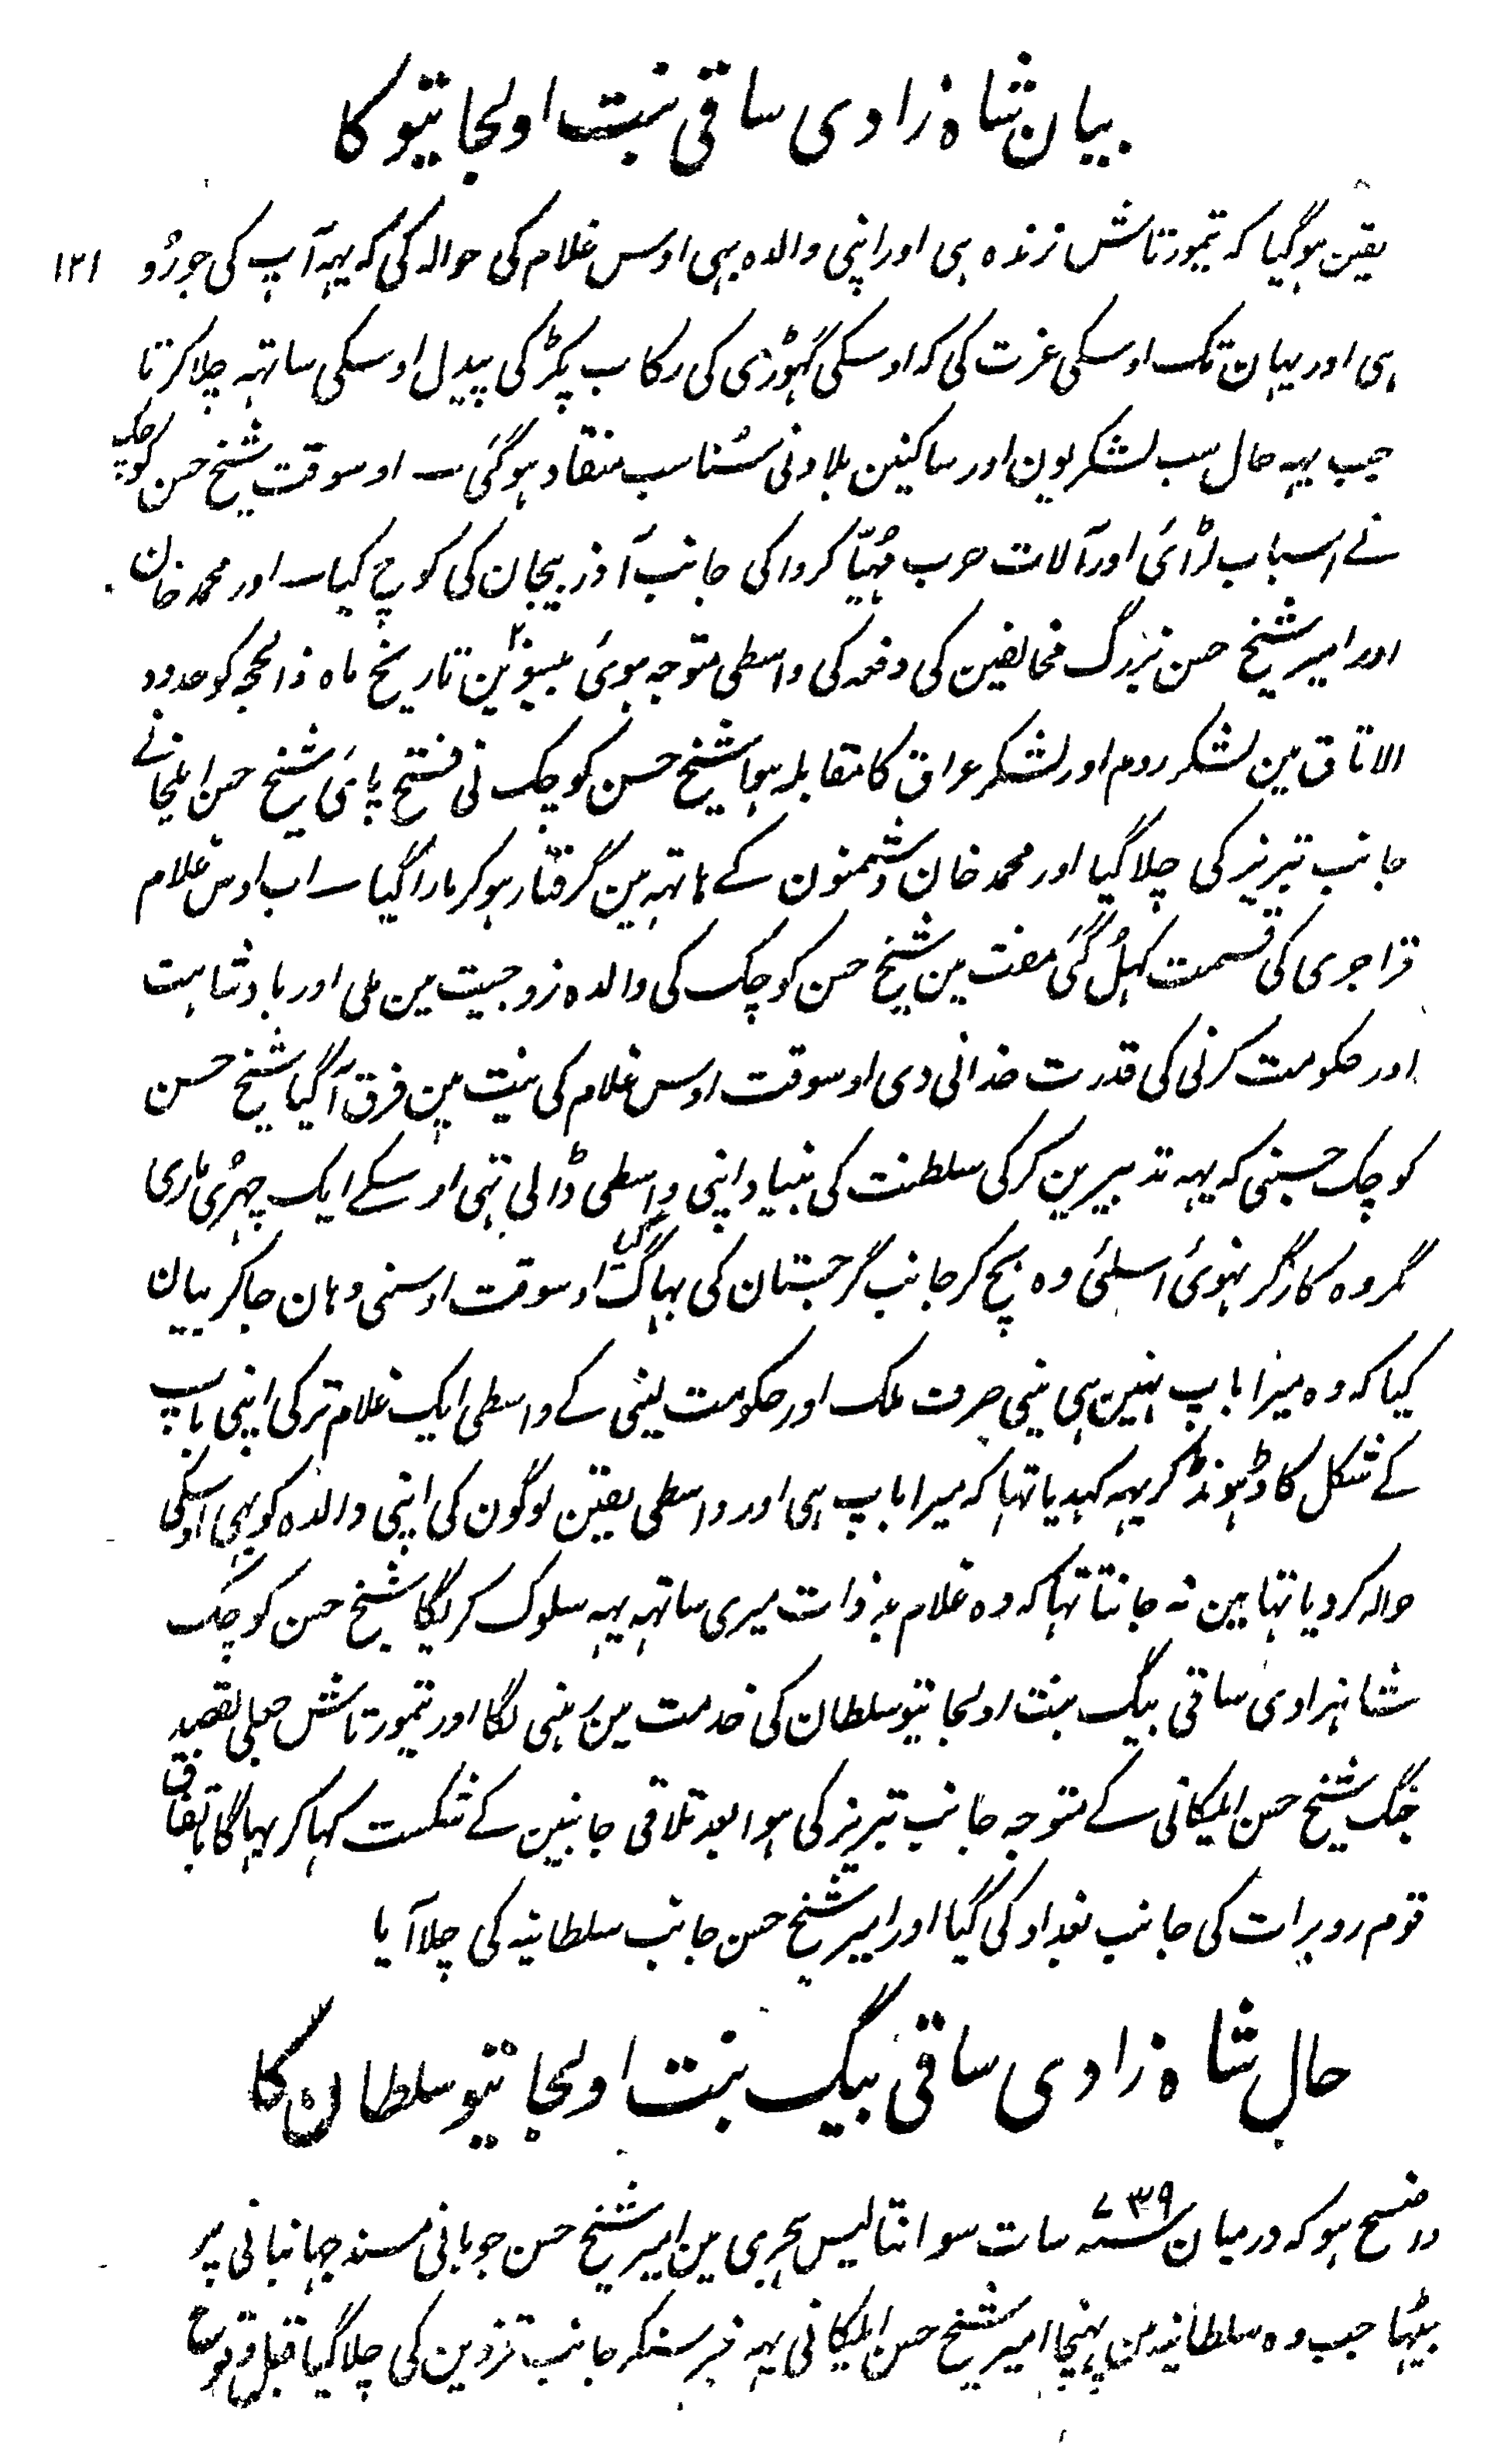 بیان شاہ زادی ساقی بنت اولجایتو کا
یقین ہوگیا کہ تیمورتاش زندہ ہی اور اپنی والدہ بہی اوس غلام کی حوالہ کی کہ یہہ آپ کی جورُو ۱۲۱
ہی اور یہان تک اوسکی عزت کی کہ اوسکی گہوڑی کی رکاب پکڑ کی پیدل اوسکی ساتہہ چلا کرتا
جب یہہ حال سب لشکریون اور ساکنین بلاد نی سُنا سب منقاد ہوگئی ــ اوسوقت شیخ حسن کوچک
نے اسباب لڑائی اور آلات حرب مُہیّا کروا کی جانب آذربیجان کی کوچ کیا ــ اور محمد خان
اور امیر شیخ حسن بزرگ مخالفین کی دفعہ کی واسطی متوجہ ہوئی بیسوئین ۲۰ تاریخ ماہ ذالحجہ کو حدود
الاتاق مین لشکر روم اور لشکر عراق کا مقابلہ ہوا شیخ حسن کوچک نی فتح پائی شیخ حسن ایلخانے
جانب تبریز کی چلا گیا اور محمد خان دشمنون کے ہاتہہ مین گرفتار ہو کر مارا گیا ــ اب اوس غلام
قراجری کی قسمت کہُل گئی مفت مین شیخ حسن کوچک کی والدہ زوجیت مین ملی اور بادشاہت
اور حکومت کرنی کی قدرت خدا نی دی اوسوقت اوس غلام کی نیت مین فرق آگیا شیخ حسن
کوچک جسنی کہ یہہ تدبیرین کرکی سلطنت کی بنیاد اپنی واسطی ڈالی تہی اوسکے ایک چہُری ماری
مگر وہ کارگر نہوئی اسلئی وہ بچ کر جانب گرجستان کی بہاگ گیا اوسوقت اوسنی وہان جا کر بیان
کیا کہ وہ میرا باپ نہین ہی مینی صرف ملک اور حکومت لینی کے واسطی ایک غلام ترکی اپنی باپ
کے شکل کا ڈہونڈ کر یہہ کہدیا تہا کہ میرا باپ ہی اور واسطی یقین لوگون کی اپنی والدہ کو بہی اوسکی
حوالہ کر دیا تہا مین نہ جانتا تہا کہ وہ غلام بد ذات میری ساتہہ یہہ سلوک کریگا شیخ حسن کوچک
شاہزادی ساقی بیگ بنت اولجایتو سلطان کی خدمت مین رہنی لگا اور تیمورتاش جعلی بقصد
جنگ شیخ حسن ایلکانی کے متوجہ جانب تبریز کی ہوا بعد تلاقی جانبین کے شکست کہا کر بہاگا باتفاق
قوم رویرات کی جانب بغداد کی گیا اور امیر شیخ حسن جانب سلطانیہ کی چلا آیا
حال شاہ زادی ساقی بیگ بنت اولجایتو سلطان کا
واضح ہو کہ درمیان ۷۳۹ سنہ سات سو انتالیس ہجری مین امیر شیخ حسن چوبانی مسند جہانبانی پر
بیٹہا جب وہ سلطانیہ مین پہنچا امیر شیخ حسن ایلکانی یہہ خبر سنکر جانب قزوین کی چلا گیا قبل وقوع